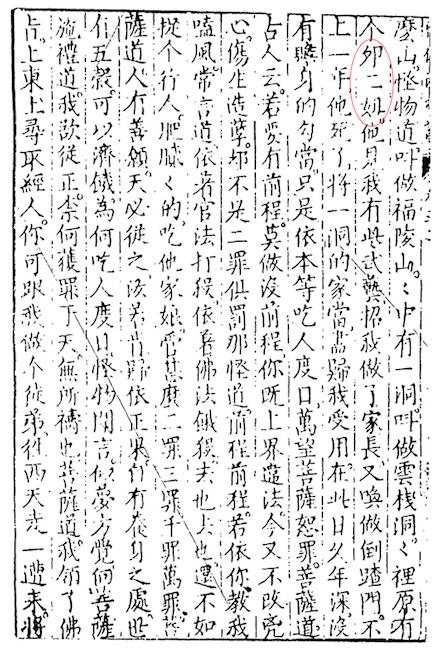 麼山怪物道叫做福陵山〻中有一洞叫做雲棧洞〻裡原有
个夘二姐他見我有些武藝招我做了家長又喚做倒踏門不
上一年他死了將一洞的家當盡歸我受用在此日久年深沒
有贍身的勾當只是依本等吃人度日萬望菩薩恕罪菩薩道
古人云若要有前程莫做沒前程你既上界違法今又不改兇
心傷生造孽却不是二罪俱罰那怪道前程前程若依你教我
嗑風常言道依着官法打殺依着佛法餓殺去也去也還不如
捉个行人肥膩〻的吃他家娘管甚麼二罪三罪千罪萬罪菩
薩道人有善願天必從之汝若肯歸依正果自有養身之處世
有五穀可以濟饑為何吃人度日怪物聞言似夢方覺向菩薩
施禮道我欲從正奈何獲罪于天無所禱也菩薩道我領了佛
旨上東土尋取經人你可跟他做个徒弟往西天走一遭來將